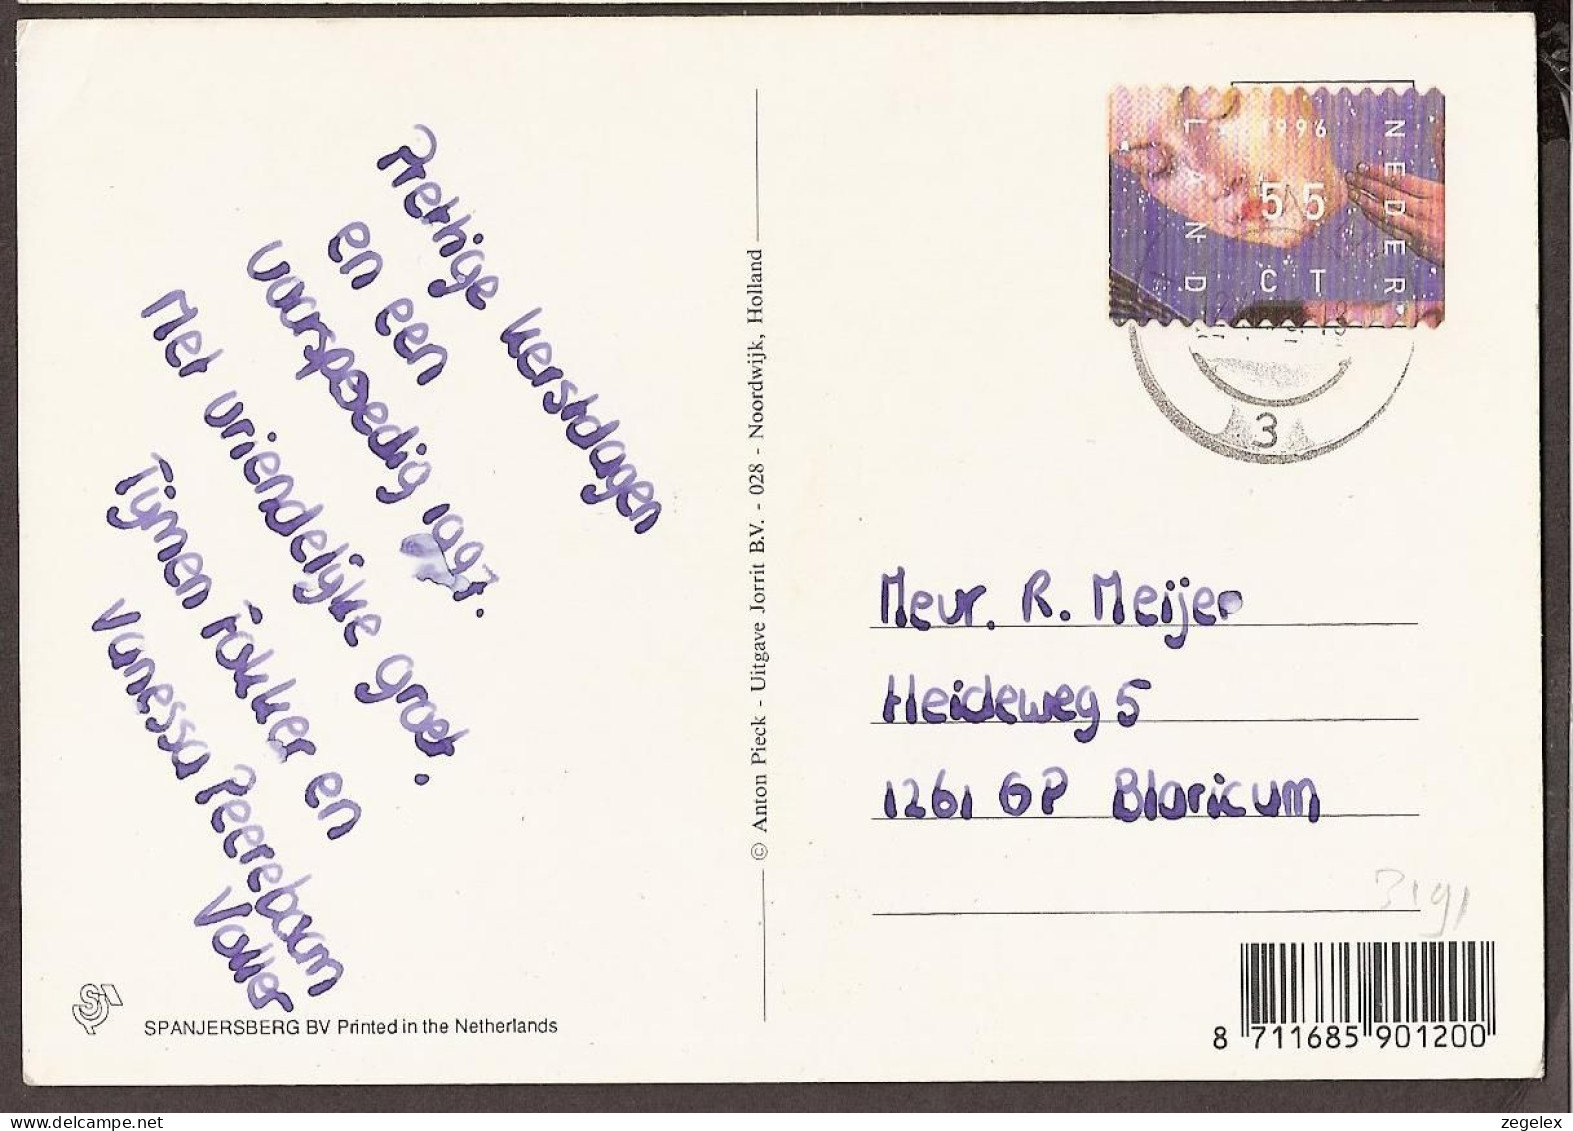 Prettige kerstdagen
en een
voorspoedig 1997.
Met vriendelijke groet.
Tijmen Fokker en
Vanessa Peereboom
Voller
SPANJERSBERG BV Printed in the Netherlands
© Anton Pieck - Uitgave Jorrit B.V. - 028 - Noordwijk, Holland
NEDERLAND
1996
55
CT
3
Mevr. R. Meijer
Heideweg 5
1261 GP Blaricum
3191
8 711685 901200
www.delcampe.net
zegelex